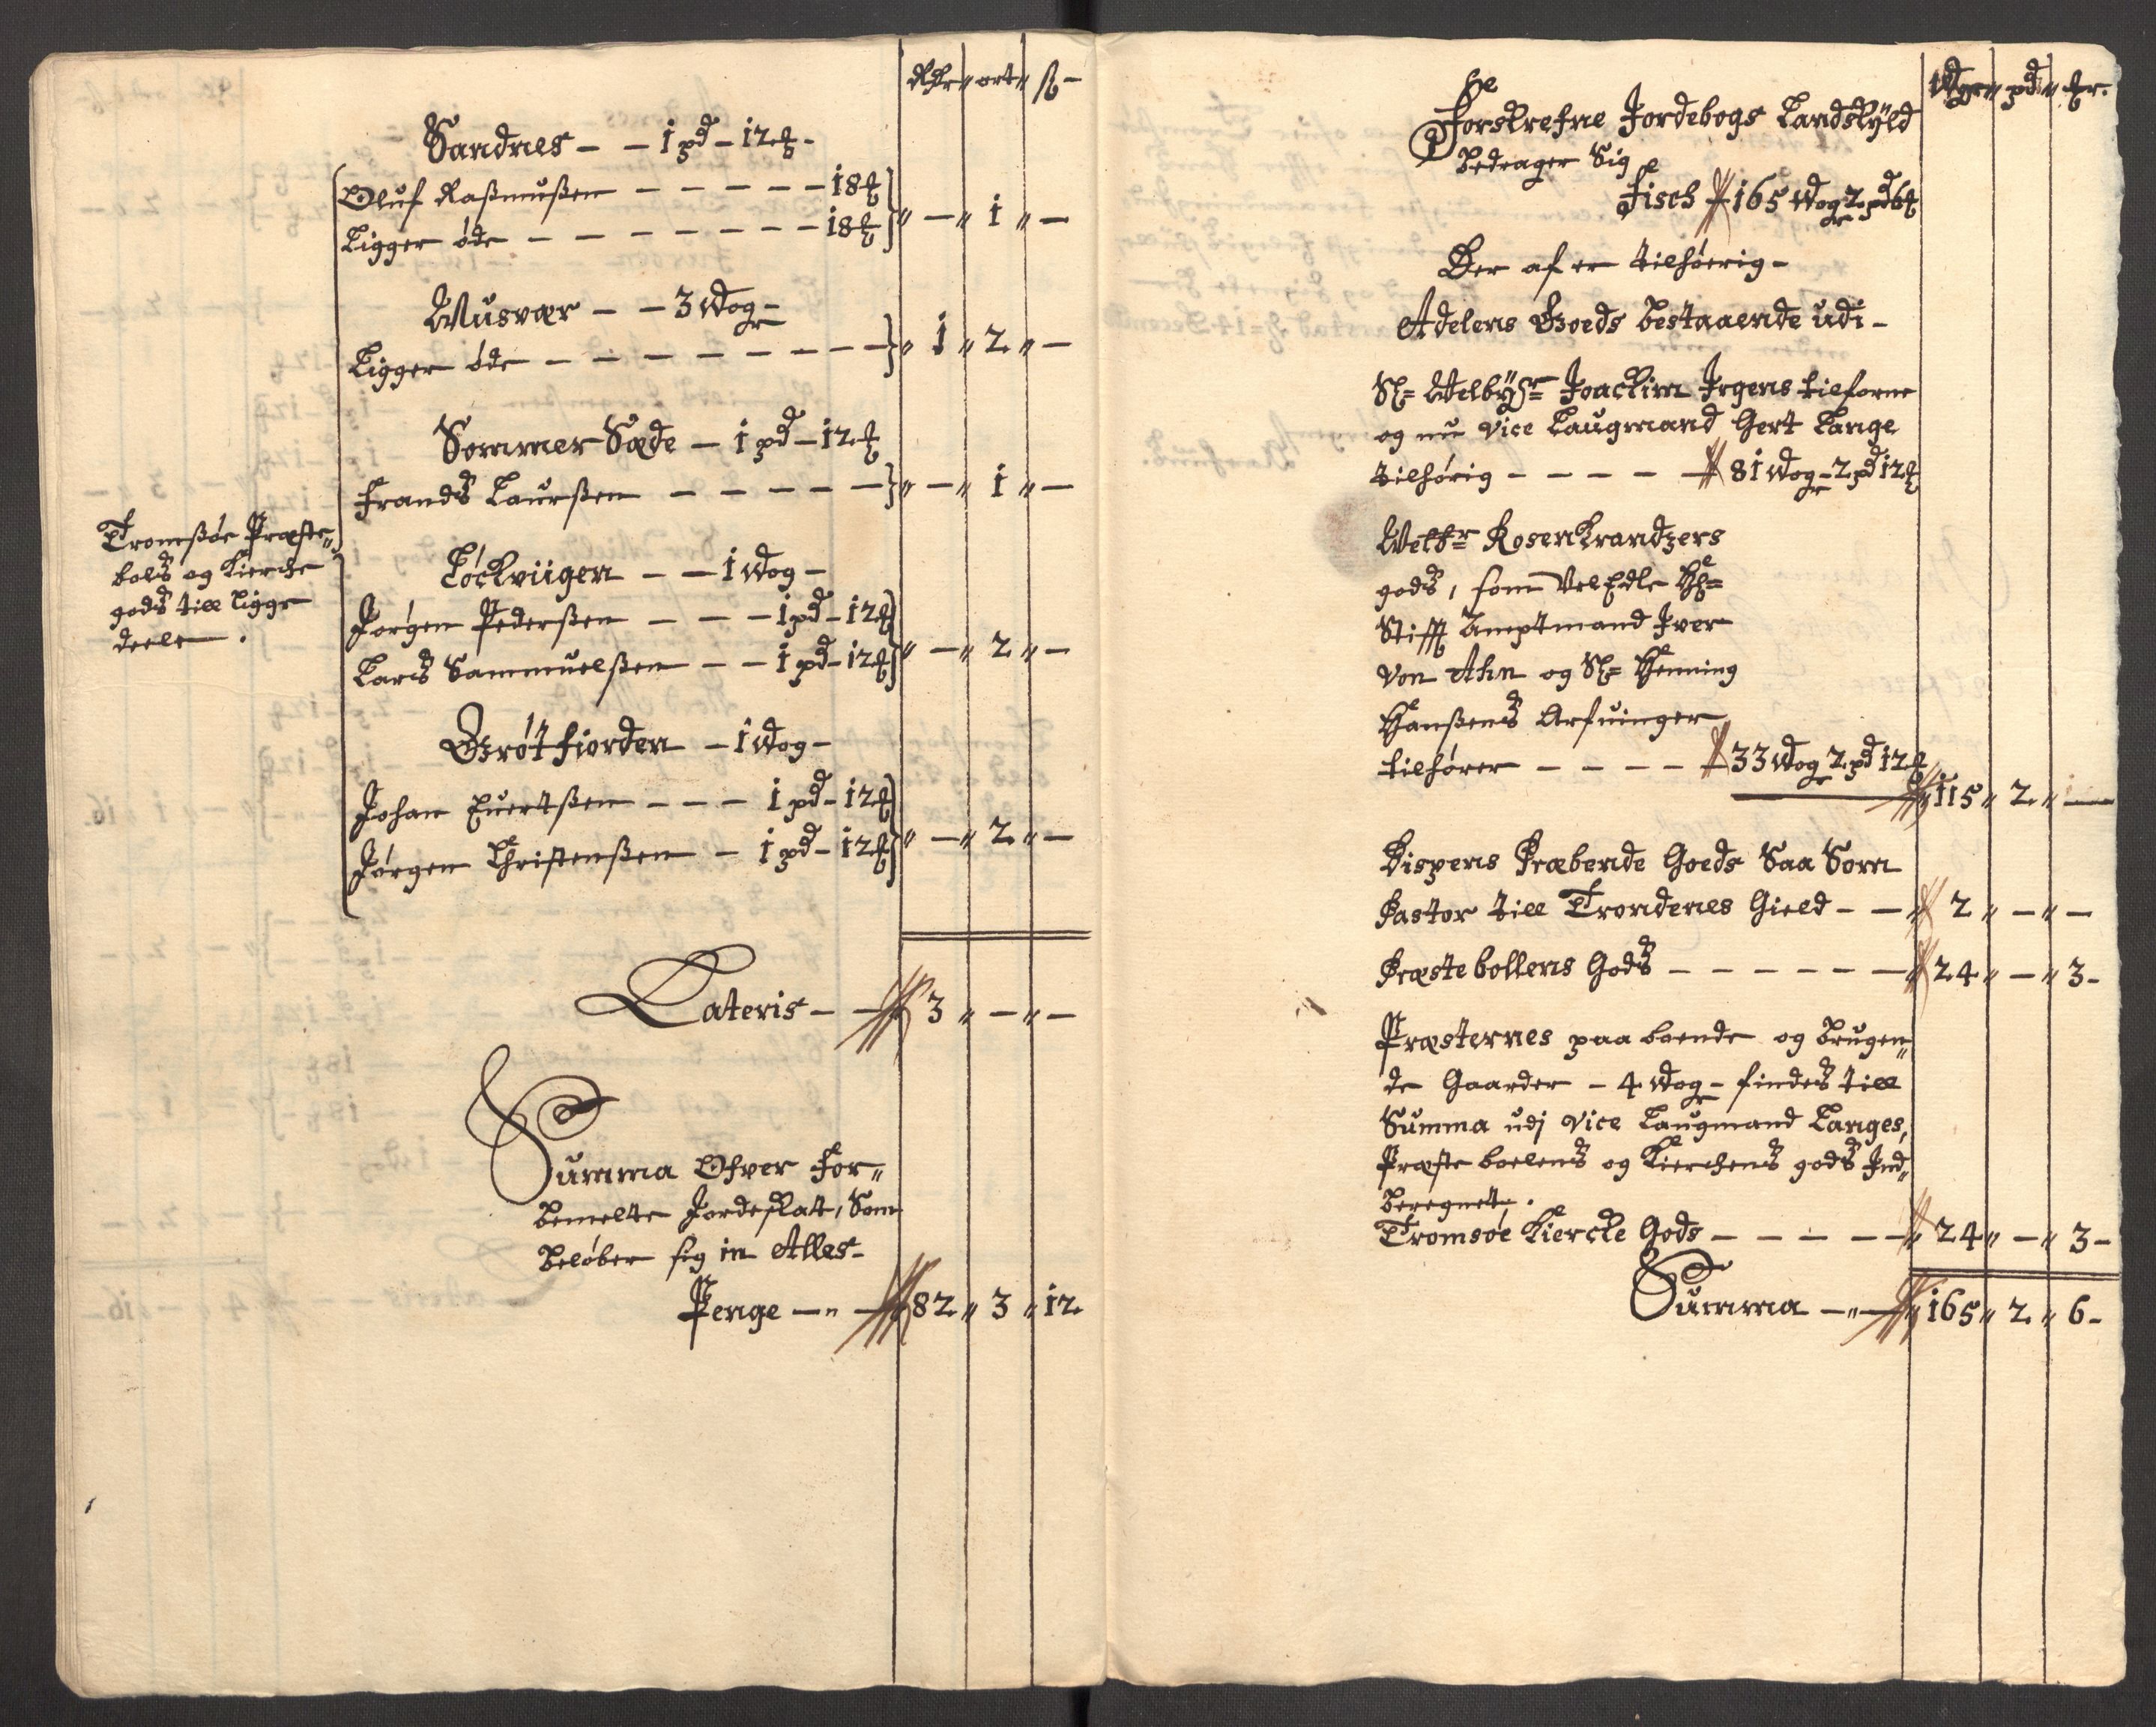 Rdr " ort " ß -
Sandnes - - 1 pd - 12 ℔ -
Oluf Rasmusßen - - - - - 18 ℔
Ligger øde - - - - - - - 18 ℔ " - " 1 " -
Musvær - - 3 wog -
Ligger øde - - - - - - - - - " 1 " 2 " -
Sommer Sæde - 1 pd - 12 ℔
Frands Laurßen - - - - - " - " 1 " -
Tromsøe Præste-
bols og Kierche
gods till ligge
deele.
Løckviigen - - 1 wog -
Jørgen Pederßen - - - 1 pd - 12 ℔
Lars Sammuelßen - - 1 pd - 12 ℔ " - " 2 " -
Grøtfiorden - 1 wog -
Johan Evertßen - - - 1 pd - 12 ℔
Jørgen Christenßen - 1 pd - 12 ℔ " - " 2 " -
Lateris - - 3 " - " -
Summa Ofver For-
bemelte Jordeskat, Som
beløber sig in Alles -
Penge - " - 82 " 3 " 12
wogr " pd " ℔r.
Forskrefne Jordebogs Landskyld
bedrager Sig
Fisch 165 wog 2 pd 6 ℔
Der af er tilhørig -
Adelens Goeds bestaaende udi -
Sl= Welbyr= Joackim Irgens tilforne
og nu vice Laugmand Gert Lange
tilhørig - - - - - 81 wog - 2 pd 12 ℔
Welbr= Rosenkrandzers
gods, som VelEdle Hr=
Stifft Amptmand Iver
von Ahn og Sl= Henning
Hanßens Arfvinger
tilhører - - - - 33 wog 2 pd 12 ℔
" 115 " 2 " -
Bispens Præbende Goeds Saa Som
Pastor till Trondenes Gield - - " 2 " - " -
Præstebollens Gods - - - - - - " 24 " - " 3 -
Præsternes paa boende og brugen-
de Gaarder - 4 wog - findes till
Summa udj vice Laugmand Langes,
Præste boelens og Kierchens gods Ind-
beregnet.
Tromsøe Kiercke Gods - - - - - " 24 " - " 3 -
Summa - " - " 165 " 2 " 6 -